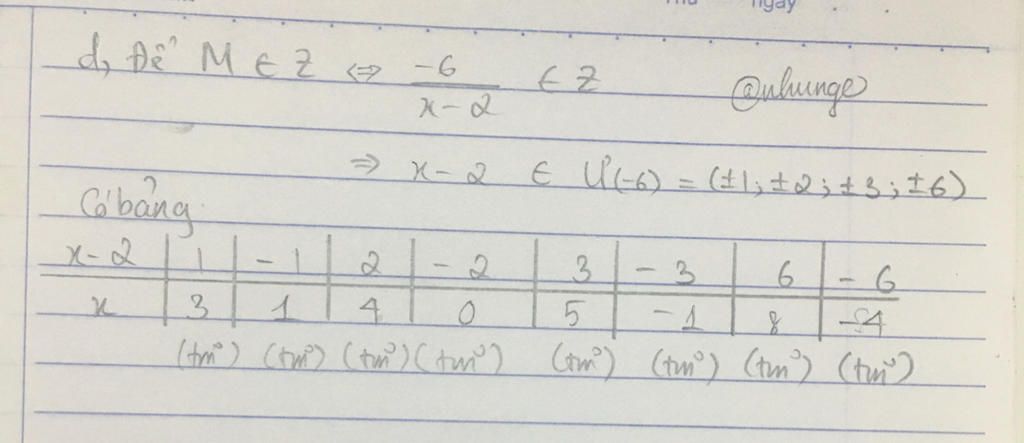 Thứ ngày
d, Để M ∈ Z ⇔ -6/(x-2) ∈ Z @nhunge
⇒ x-2 ∈ Ư(-6) = (±1; ±2; ±3; ±6)
Có bảng
x-2 | 1 | -1 | 2 | -2 | 3 | -3 | 6 | -6
x | 3 | 1 | 4 | 0 | 5 | -1 | 8 | -4
(tm) (tm) (tm) (tm) (tm) (tm) (tm) (tm)